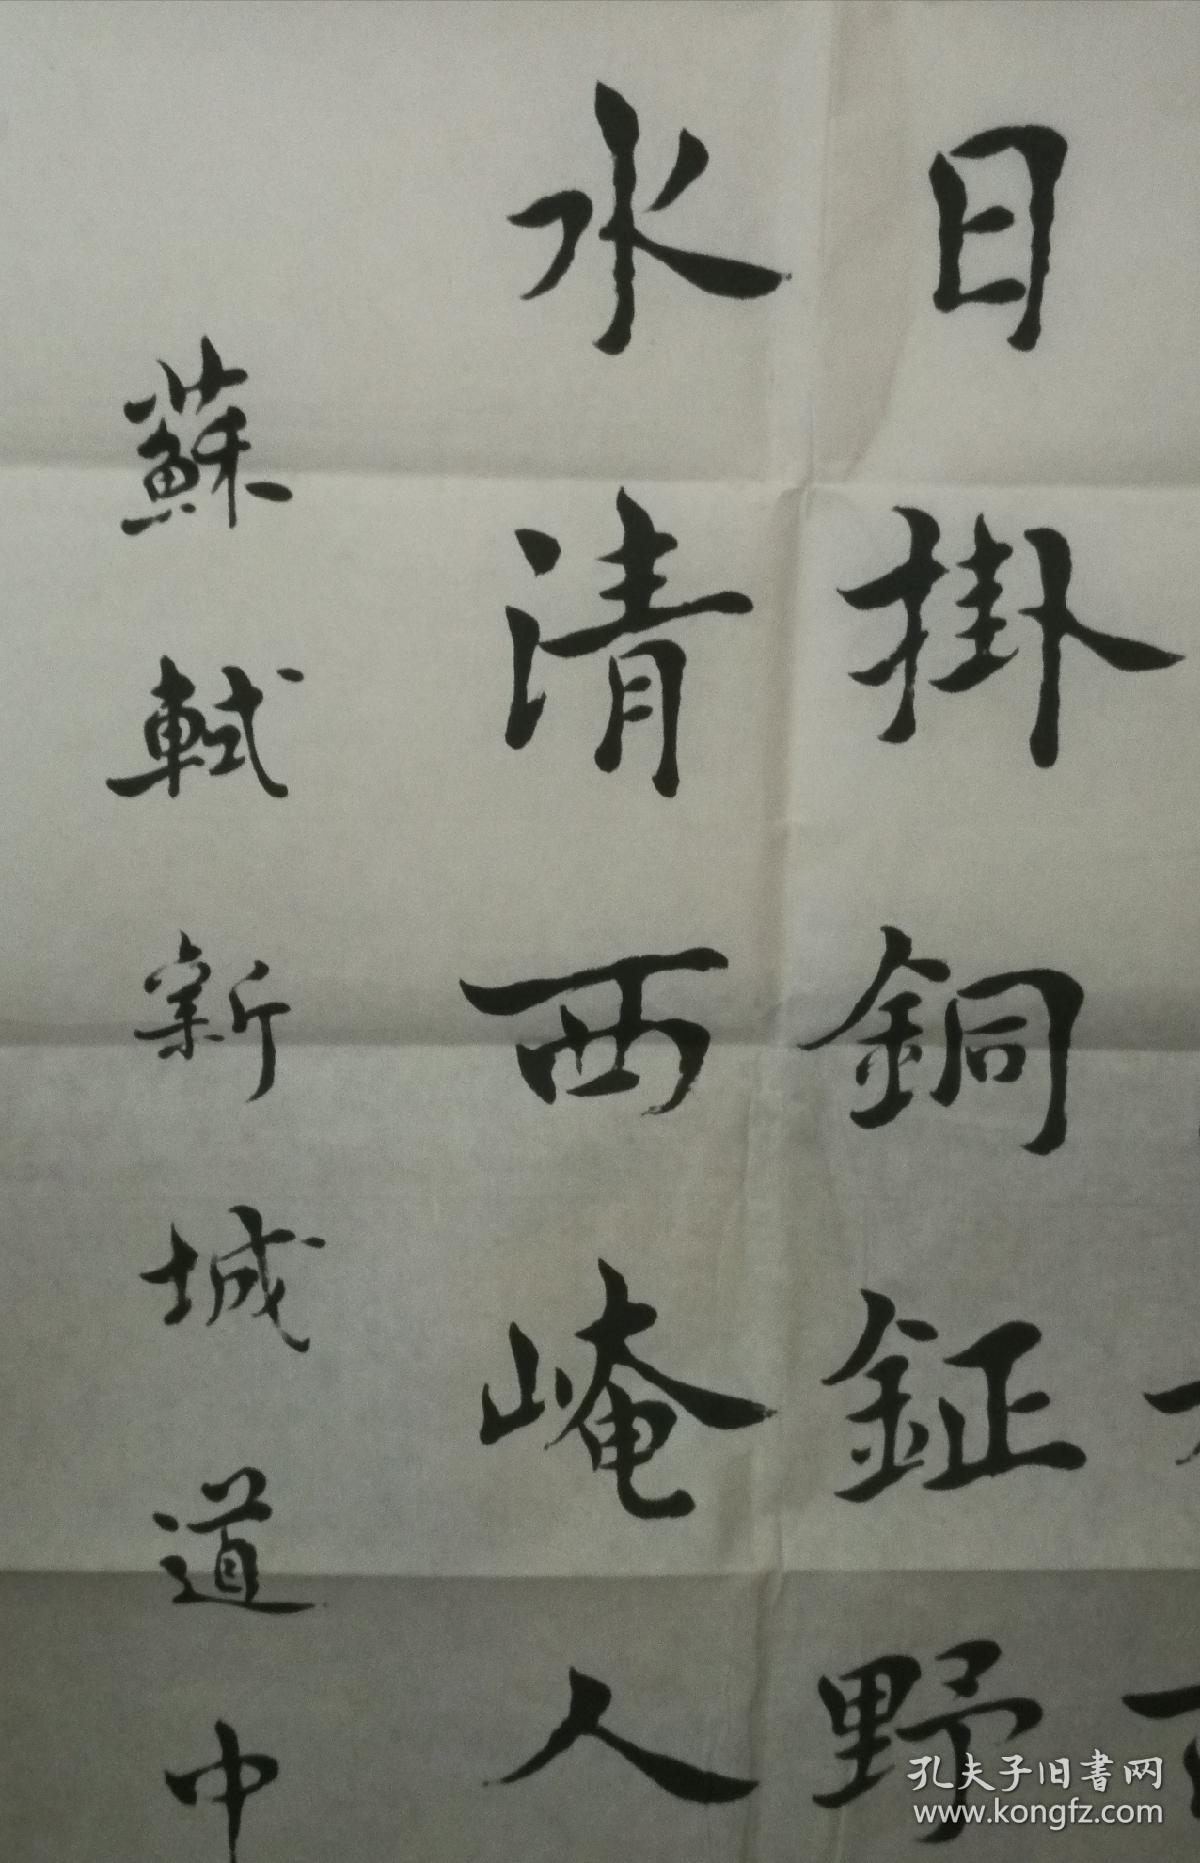 日掛銅鉦野
水清西崦人
蘇軾新城道中
孔夫子旧書网
www.kongfz.com